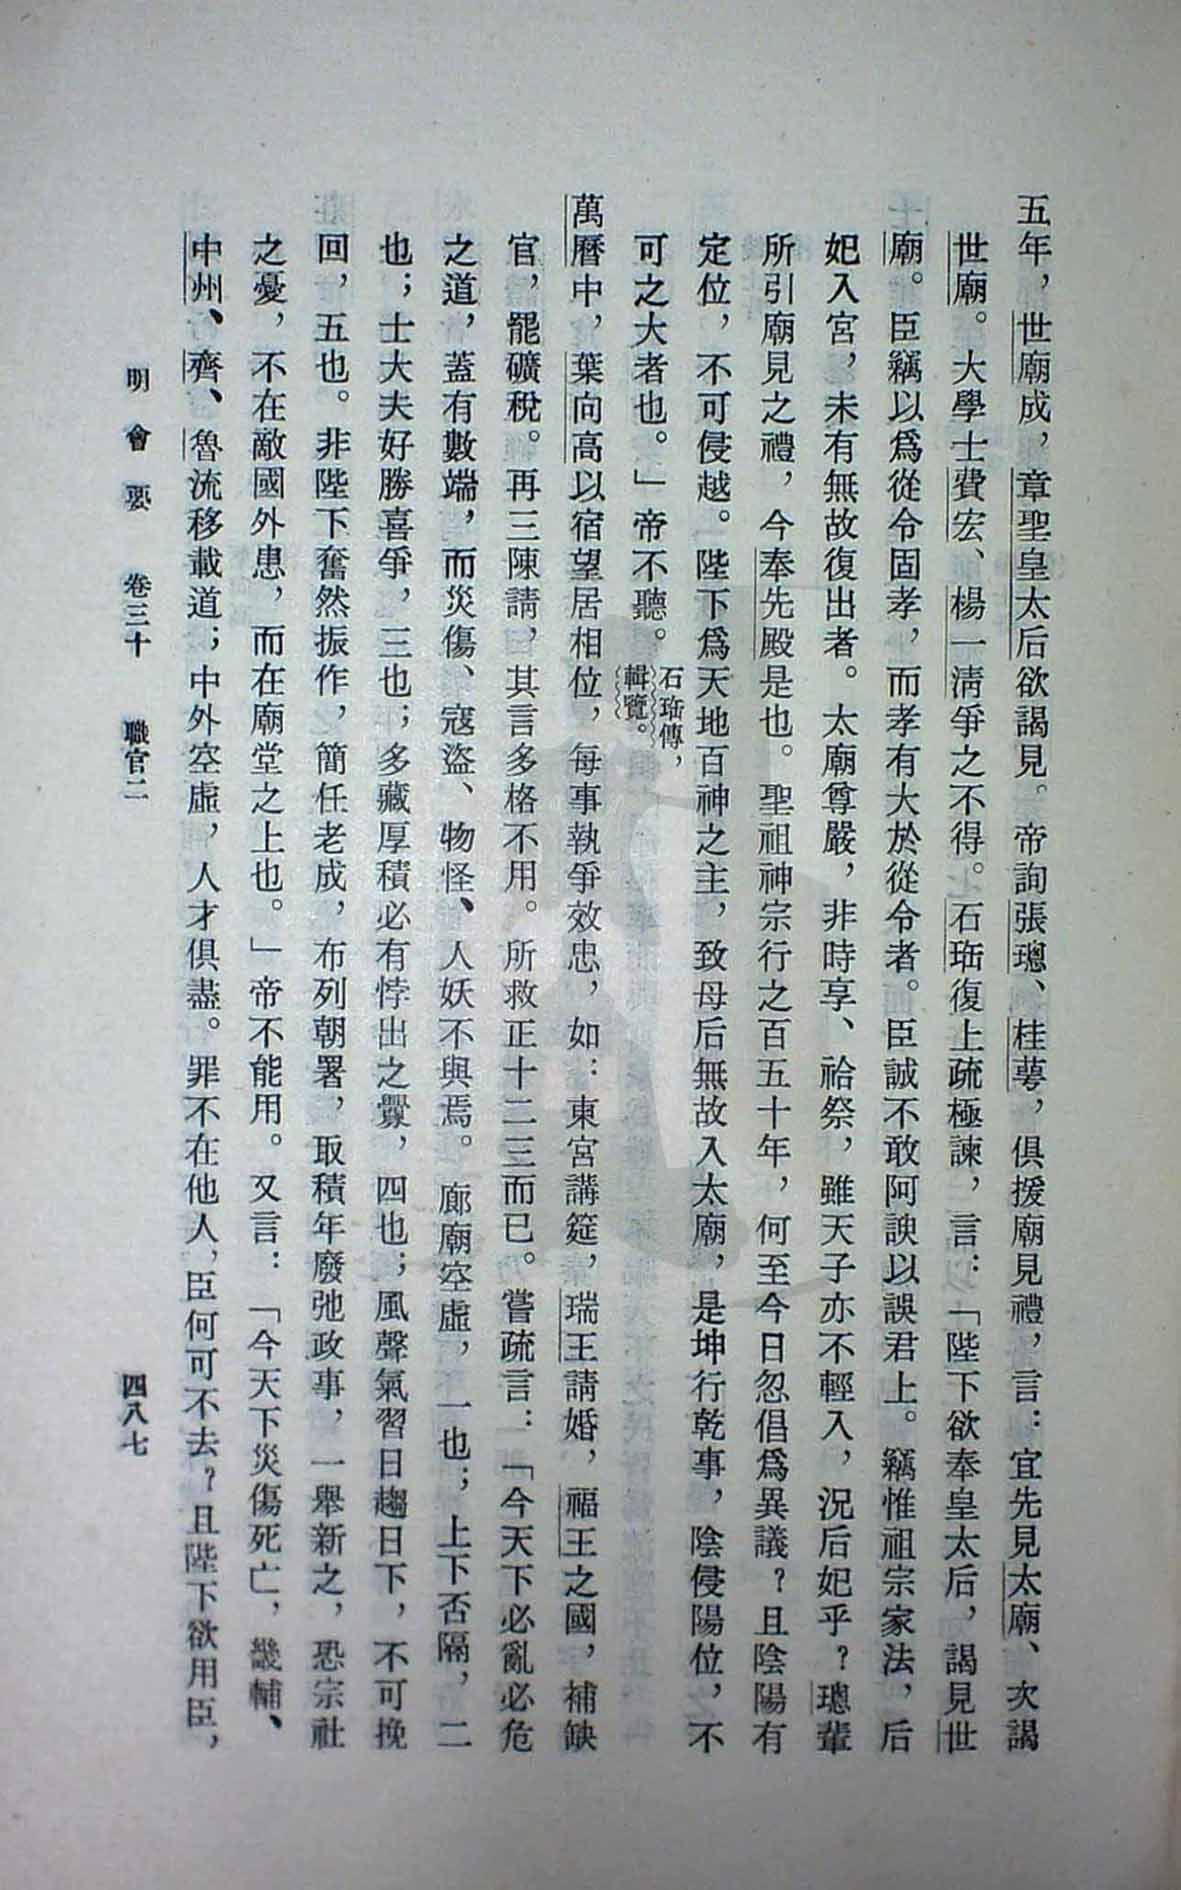 五年，世廟成，章聖皇太后欲謁見。帝詢張璁、桂萼，俱援廟見禮，言：宜先見太廟、次謁
世廟。大學士費宏、楊一清爭之不得。石珤復上疏極諫，言：「陛下欲奉皇太后，謁見世
廟。臣竊以爲從令固孝，而孝有大於從令者。臣誠不敢阿諛以誤君上。竊惟祖宗家法，后
妃入宮，未有無故復出者。太廟尊嚴，非時享、祫祭，雖天子亦不輕入，況后妃乎？璁輩
所引廟見之禮，今奉先殿是也。聖祖神宗行之百五十年，何至今日忽倡爲異議？且陰陽有
定位，不可侵越。陛下爲天地百神之主，致母后無故入太廟，是坤行乾事，陰侵陽位，不
可之大者也。」帝不聽。石珤傳，
輯覽。
萬曆中，葉向高以宿望居相位，每事執爭效忠，如：東宮講筵，瑞王請婚，福王之國，補缺
官，罷礦稅。再三陳請，其言多格不用。所救正十二三而已。嘗疏言：「今天下必亂必危
之道，蓋有數端，而災傷、寇盜、物怪、人妖不與焉。廊廟空虛，一也；上下否隔，二
也；士大夫好勝喜爭，三也；多藏厚積必有悖出之釁，四也；風聲氣習日趨日下，不可挽
回，五也。非陛下奮然振作，簡任老成，布列朝署，取積年廢弛政事，一舉新之，恐宗社
之憂，不在敵國外患，而在廟堂之上也。」帝不能用。又言：「今天下災傷死亡，畿輔、
中州、齊、魯流移載道；中外空虛，人才俱盡。罪不在他人，臣何可不去？且陛下欲用臣，
明會要　卷三十　職官二
四八七